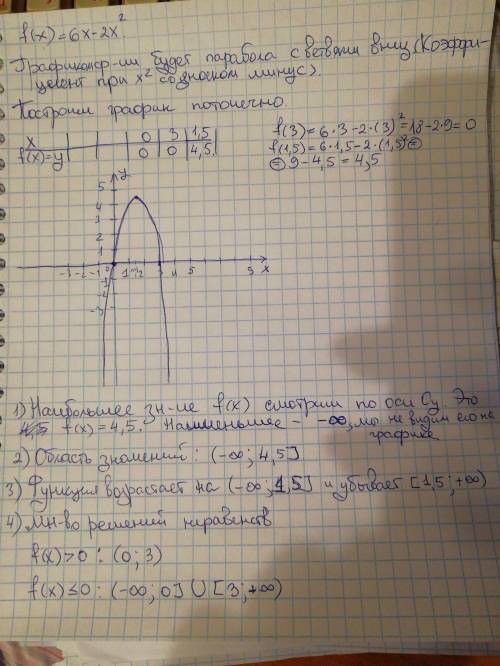 f(x)=6x-2x².
Графиком ф-ии будет парабола с ветвями вниз (Коэффи-
циент при x² со знаком минус).
Построим график поточечно.
x 0 3 1,5
f(x)=y 0 0 4,5
f(3)=6·3-2·(3)²=18-2·9=0
f(1,5)=6·1,5-2·(1,5)²=
=9-4,5=4,5
y
5
4
3
2
1
-3 -2 -1 0 1 2 3 4 5 9 x
-1
-2
-3
1) Наибольшее зн-ие f(x) смотрим по оси Oy. Это
f(x)=4,5. Наименьшее - -∞, мы не видим его на
графике
2) Область значений: (-∞; 4,5]
3) Функция возрастает на (-∞; 1,5] и убывает [1,5; +∞)
4) Мн-во решений неравенств
f(x)>0 : (0; 3)
f(x)≤0 : (-∞; 0] ∪ [3; +∞)